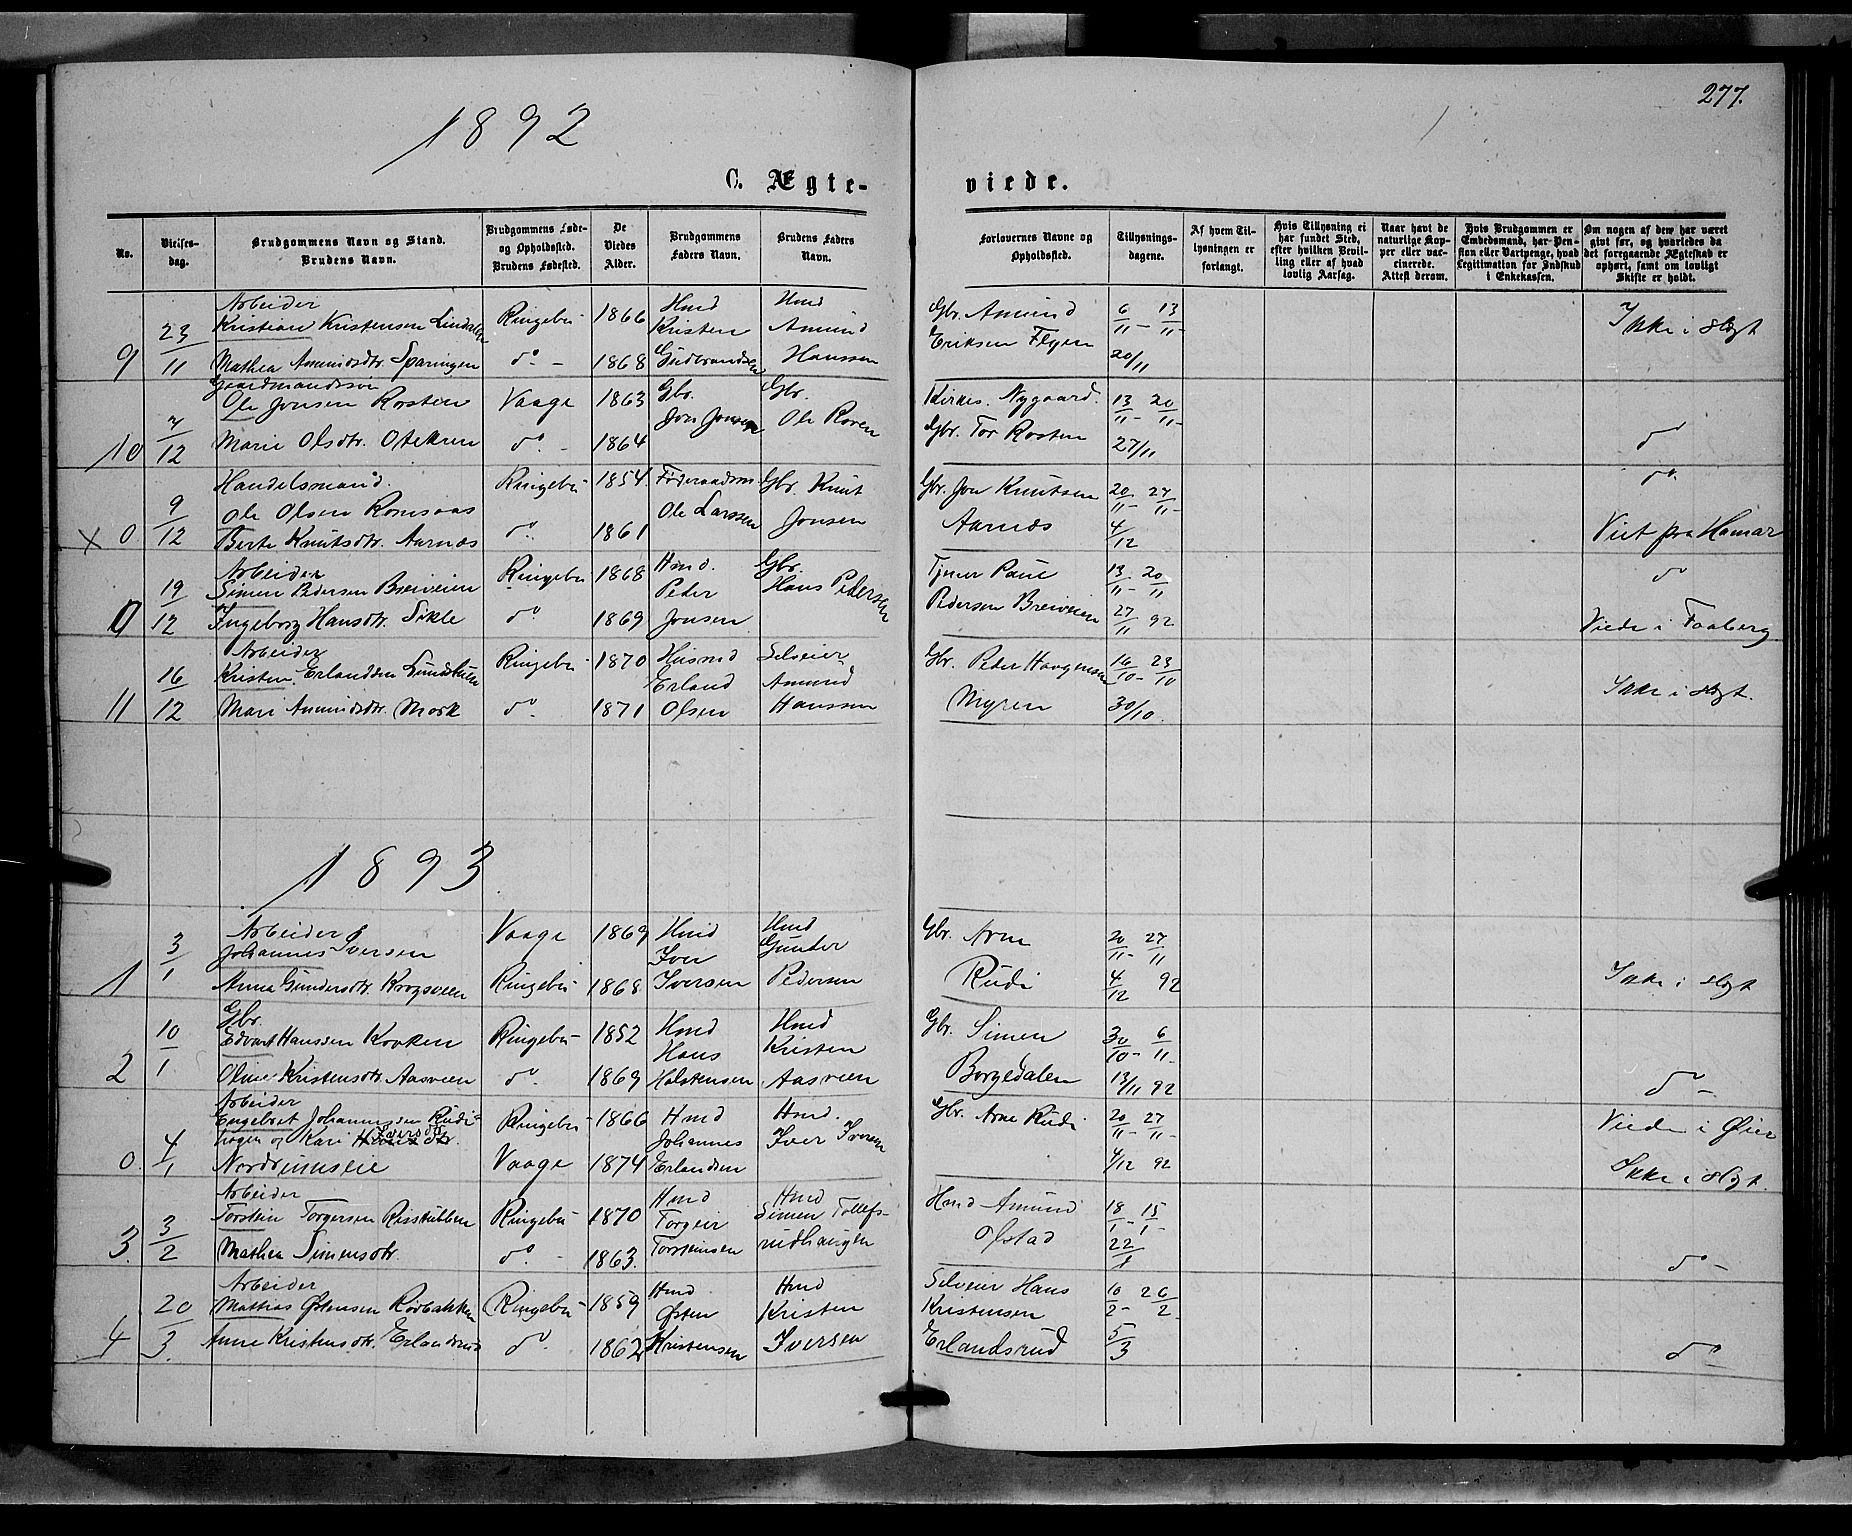 277.
1892
C. Ægte-
viede.
No.
Vielses-
dag.
Brudgommens Navn og Stand.
Brudens Navn.
Brudgommens Føde-
og Opholdssted.
Brudens Fødested.
De
Viedes
Alder.
Brudgommens
Faders Navn.
Brudens Faders
Navn.
Forlovernes Navne og
Opholdssted.
Tillysnings-
dagene.
Af hvem Til-
lysningen er
forlangt.
Hvis Tillysning ei
har fundet Sted,
efter hvilken Bevil-
ling eller af hvad
lovlig Aarsag.
Naar havt de
naturlige Kop-
per eller vac-
cinerede.
Attest derom.
Hvis Brudgommen er
Embedsmand, har Pen-
sion eller Vartpenge, hvad
Legitimation for Indskud
i Enkekassen.
Om nogen af dem har været
gift før, og hvorledes da
det foregaaende Ægteskab er
ophørt, samt om lovligt
Skifte er holdt.
9 23/11 Arbeider
Kristian Kristensen
Mathea Amundsdtr. Sparingen
Ringebu 1866
do. 1868
Hmd
Kristen
Gudbrandsen
Hmd
Amund
Hanssen
Gbr. Amund
Eriksen Flyen
6/11 - 13/11
20/11
Ikke i slegt
10 7/12 Gaardmandssøn
Ole Jonsen Rosten
Marie Olsdtr.
Vaage 1863
do. 1864
Gbr.
Jon Jonsen
Gbr.
Ole
Kirkes. Nygaard.
Gbr. Tor Rosten
13/11 - 20/11
27/11
do
x 0 9/12 Handelsmand.
Ole Olsen Romsaas
Berte Knutsdtr. Aarnæs
Ringebu 1854.
do. 1861
Føderaadsm.
Ole Larssen
Gbr. Knut
Jonsen
Gbr. Jon Knutsen
Aarnæs
20/11 - 27/11
4/12
do.
Viet fra Hamar
0 19/12 Arbeider
Simen Pedersen Breiveien
Ingeborg Hansdtr. Sikle
Ringebu 1868
do. 1869
Hmd.
Peder
Jonsen
Gbr.
Hans Pedersen
Tjener Paul
Pedersen Breiveien
13/11 - 20/11
27/11 92
do
Viede i Faaberg
11 16/12 Arbeider
Kristen Erlandsen
Mari Amundsdtr. Mork
Ringebu 1870
do. 1871
Husmd
Erland
Olsen
Selveier
Amund
Hanssen
Gbr. Peder Haagensen
Myren
16/10 - 23/10
30/10.
Ikke i slegt.
1893.
1 3/1 Arbeider
Johannes Iversen
Anna Gundersdtr. Krogsveen
Vaage 1869
Ringebu 1868
Hmd
Iver
Iversen
Hmd
Gunder
Pedersen
Gbr. Arne
Rudi
20/11 - 27/11
4/12 92
Ikke i slegt
2 10/1 Gbr.
Edvart Hanssen Kroken
Oline Kristensdtr. Aasveen
Ringebu 1852
do. 1869
Hmd
Hans
Halstensen
Hmd
Kristen
Aasveen
Gbr. Simen
Borgedalen
30/10 - 6/11
13/11 92
do
0 4/1 Arbeider
Engebret Johannessen Rudi-
hagen og Kari Iversdtr.
Nordrumseie
Ringebu 1866
Vaage 1874
Hmd
Johannes
Erlandsen
Hmd.
Iver Iversen
Gbr. Arne Rudi
20/11 - 27/11
4/12 92
Viede i Øier
Ikke i slegt.
3. 3/2 Arbeider
Torstein Torgersen Risstubben
Mathea Simensdtr.
Ringebu 1870
do. 1863.
Hmd
Torgeir
Torsteinsen
Hmd
Simen Tollefs-
rudhaugen
Hmd Amund
Ofstad
18/1 - 15/1
22/1
do
4 20/3. Arbeider
Mathias Østensen Rørbakken
Anne Kristensdtr. Erlandsrud
Ringebu 1859
do. 1862
Hmd
Østen
Kristensen
Hmd
Kristen
Iversen
Selveier Hans
Kristensen
Erlandsrud
10/2 - 26/2
5/3
do